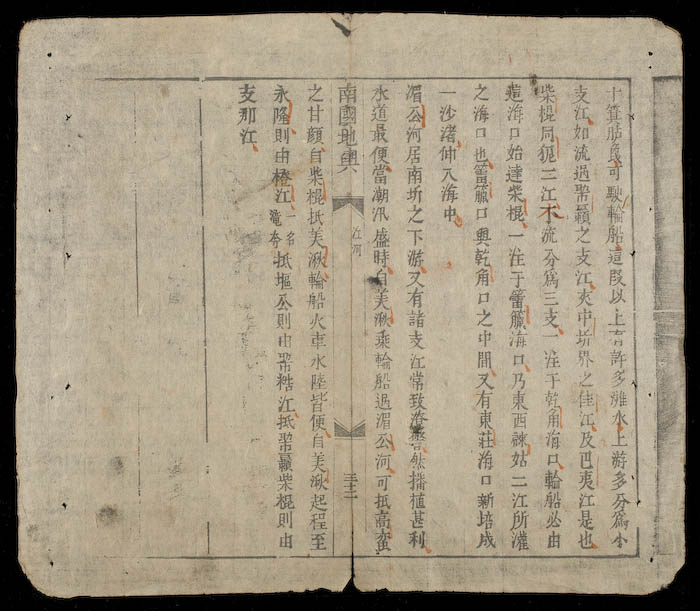 十箕粘晙可駛輪船這段以上有許多灘水上游多分為小
支江如流過幣䶞之支江夾中圻界之佳江及巴夷江是也
柴棍同狔二江下流分為三支一注于乾角海口輪船必由
這海口始達柴棍一注于䉧䶞海口乃東西諫姑二江所灌
之海口也䉧䶞口與乾角口之中間又有東莊海口新培成
一沙渚伸入海中
湄公河居南圻之下游又有諸支江常致潦然播植甚利
水道最便當潮汛盛時自美湫乘輪船過湄公河可抵高蠻
南國地輿
江河
三十二
之甘顏自柴棍抵美湫輪船火車水陸皆便自美湫起程至
永隆則由橙江一名滝夸抵塸公則由幣粩江抵幣䶞柴棍則由
支那江